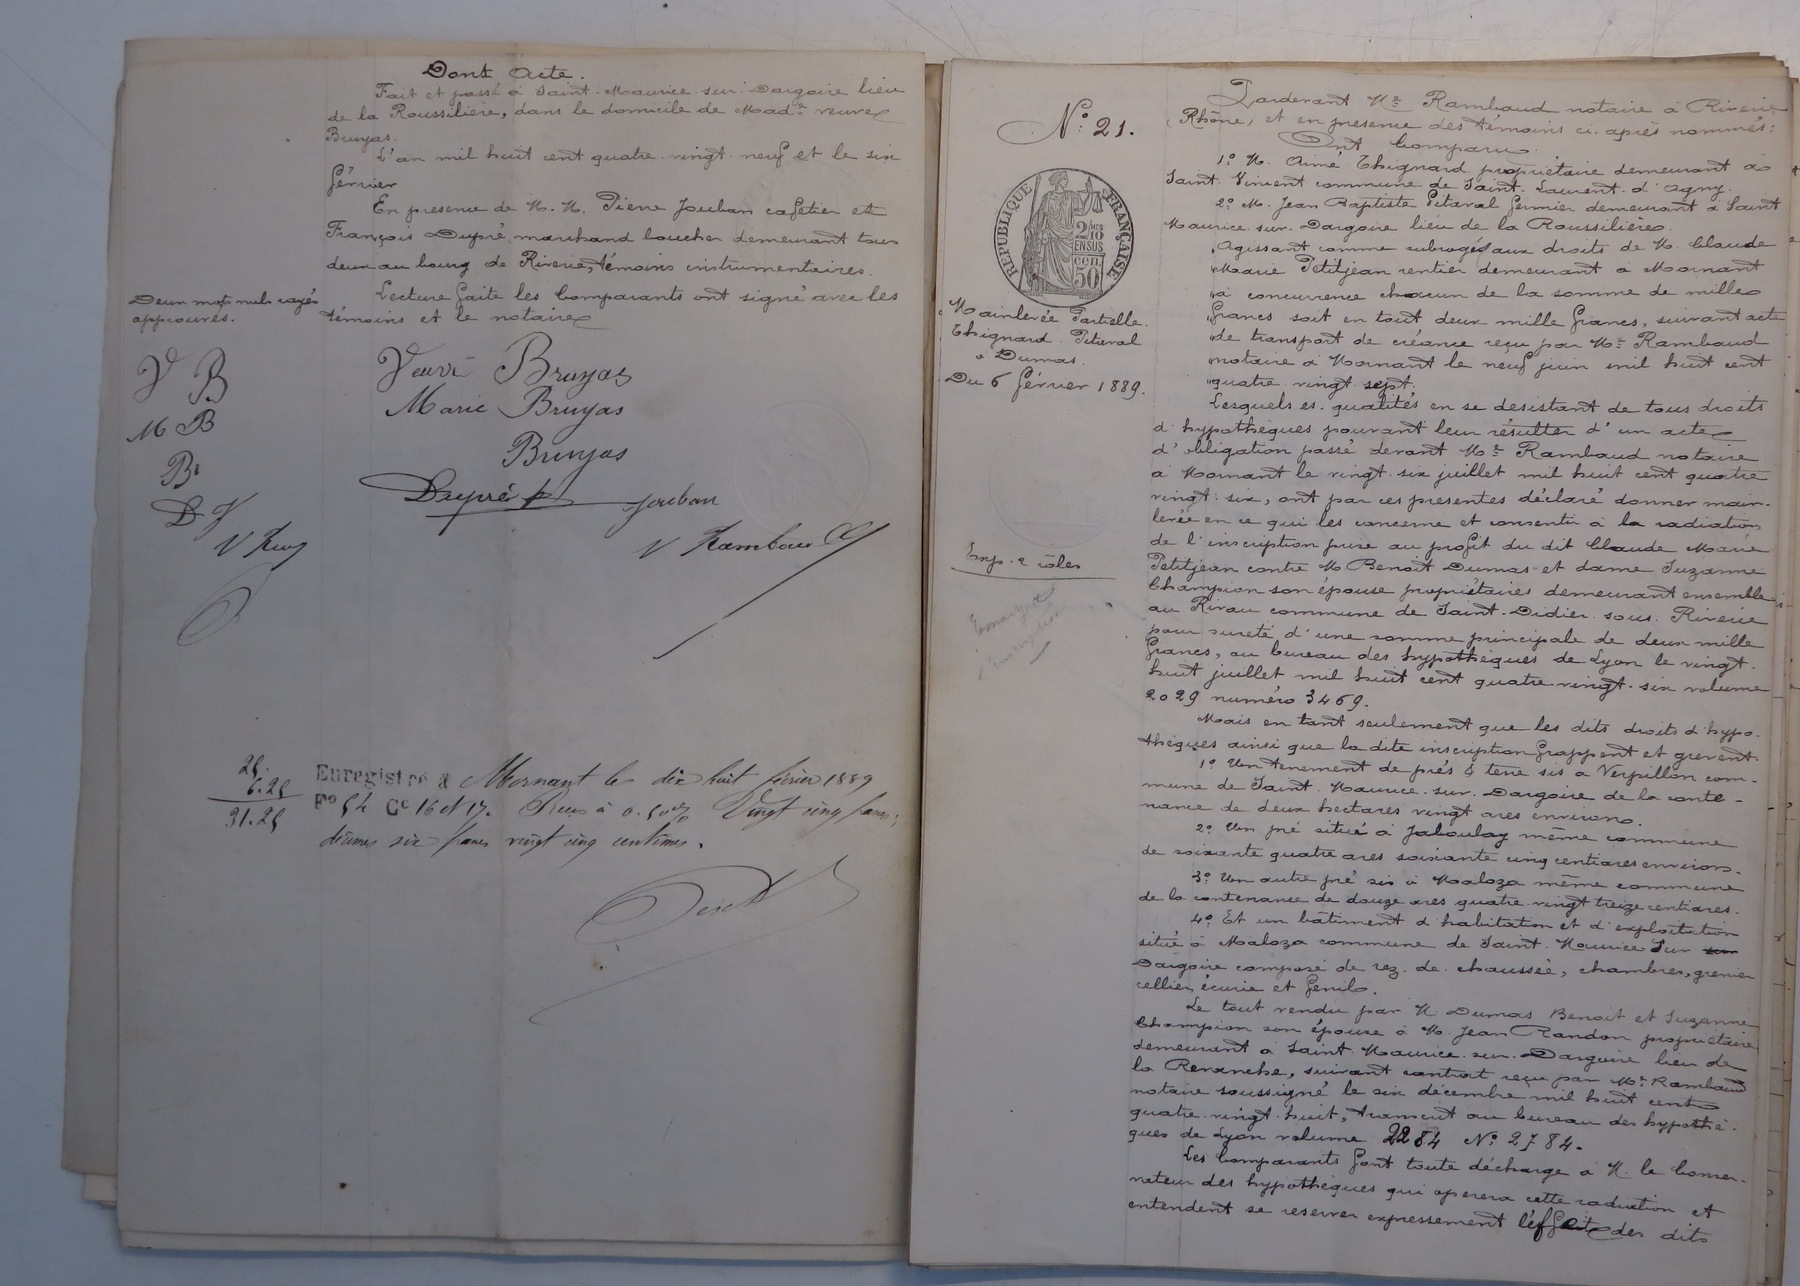 Dont acte.
Fait et passé à Saint-Maurice-sur-Dargoire lieu
de la Roussilière, dans le domicile de Made veuve
Bruyas.
L'an mil huit cent quatre-vingt-neuf et le six
février
En présence de M.M. Pierre Jouban cafetier et
François Dupré marchand boucher demeurant tous
deux au bourg de Riverie, témoins instrumentaires.
Lecture faite les Comparants ont signé avec les
témoins et le notaire
Deux mots nuls rayés
approuvés.
V B
M B
B
D J
Veuve Bruyas
Marie Bruyas
Bruyas
Dupré Jouban
V Rambaud
25.
6.25
31.25
Enregistré à Mornant le dix huit février 1889
Fo 54 Cc 16 et 17. Reçu à 0.50% Vingt cinq francs;
décimes six francs vingt cinq centimes.
No 21.
RÉPUBLIQUE FRANÇAISE
2/10 EN SUS
50 cen
Mainlevée Partielle.
Thignard. Pitaval
à Dumas.
Du 6 février 1889.
Exp. 2 rôles
Pardevant Me Rambaud notaire à Riverie
(Rhône) et en présence des témoins ci-après nommés:
Ont Comparu.
1o M. Aimé Thignard propriétaire demeurant à
Saint-Vincent commune de Saint-Laurent-d'Agny.
2o M. Jean Baptiste Pitaval fermier demeurant à Saint
Maurice-sur-Dargoire lieu de la Roussilière.
"Agissant comme subrogés aux droits de M. Claude
"Marie Petitjean rentier demeurant à Mornant
"à concurrence chacun de la somme de mille
"francs soit en tout deux mille francs, suivant acte
"de transport de créance reçu par Me Rambaud
"notaire à Mornant le neuf juin mil huit cent
"quatre-vingt-sept.
Lesquels es-qualités en se désistant de tous droits
d'hypothèques pouvant leur résulter d'un acte
d'obligation passé devant Me Rambaud notaire
à Mornant le vingt-six juillet mil huit cent quatre
vingt-six, ont par ces présentes déclaré donner main-
levée en ce qui les concerne et consentir à la radiation
de l'inscription prise au profit du dit Claude Marie
Petitjean contre M. Benoît Dumas et dame Suzanne
Champion son épouse propriétaires demeurant ensemble
au Rivau commune de Saint-Didier-sous-Riverie
pour sureté d'une somme principale de deux mille
francs, au bureau des hypothèques de Lyon le vingt-
huit juillet mil huit cent quatre-vingt-six volume
2029 numéro 3469.
Mais en tant seulement que les dits droits d'hypo-
thèques ainsi que la dite inscription frappent et grèvent.
1o Un tenement de prés & terre sis à Verpillon com-
mune de Saint-Maurice-sur-Dargoire de la conte-
nance de deux hectares vingt ares environ.
2o Un pré situé à Jaboulay même commune
de soixante quatre ares soixante cinq centiares environ.
3o Un autre pré sis à Maloza même commune
de la contenance de douze ares quatre-vingt treize centiares.
4o Et un bâtiment d'habitation et d'exploitation
situé à Maloza commune de Saint-Maurice Sur
Dargoire composé de rez-de-chaussée, chambres, grenier
cellier, écurie et fenil.
Le tout vendu par M. Dumas Benoît et Suzanne
Champion son épouse à M. Jean Randon propriétaire
demeurant à Saint-Maurice-sur-Dargoire lieu de
la Revanche, suivant contrat reçu par Me Rambaud
notaire soussigné le six décembre mil huit cent
quatre-vingt-huit, transcrit au bureau des hypothè-
ques de Lyon volume 2284 No 2784.
Les Comparants font toute décharge à M. le Conser-
vateur des hypothèques qui opérera cette radiation et
entendent se réserver expressément l'effet des dits